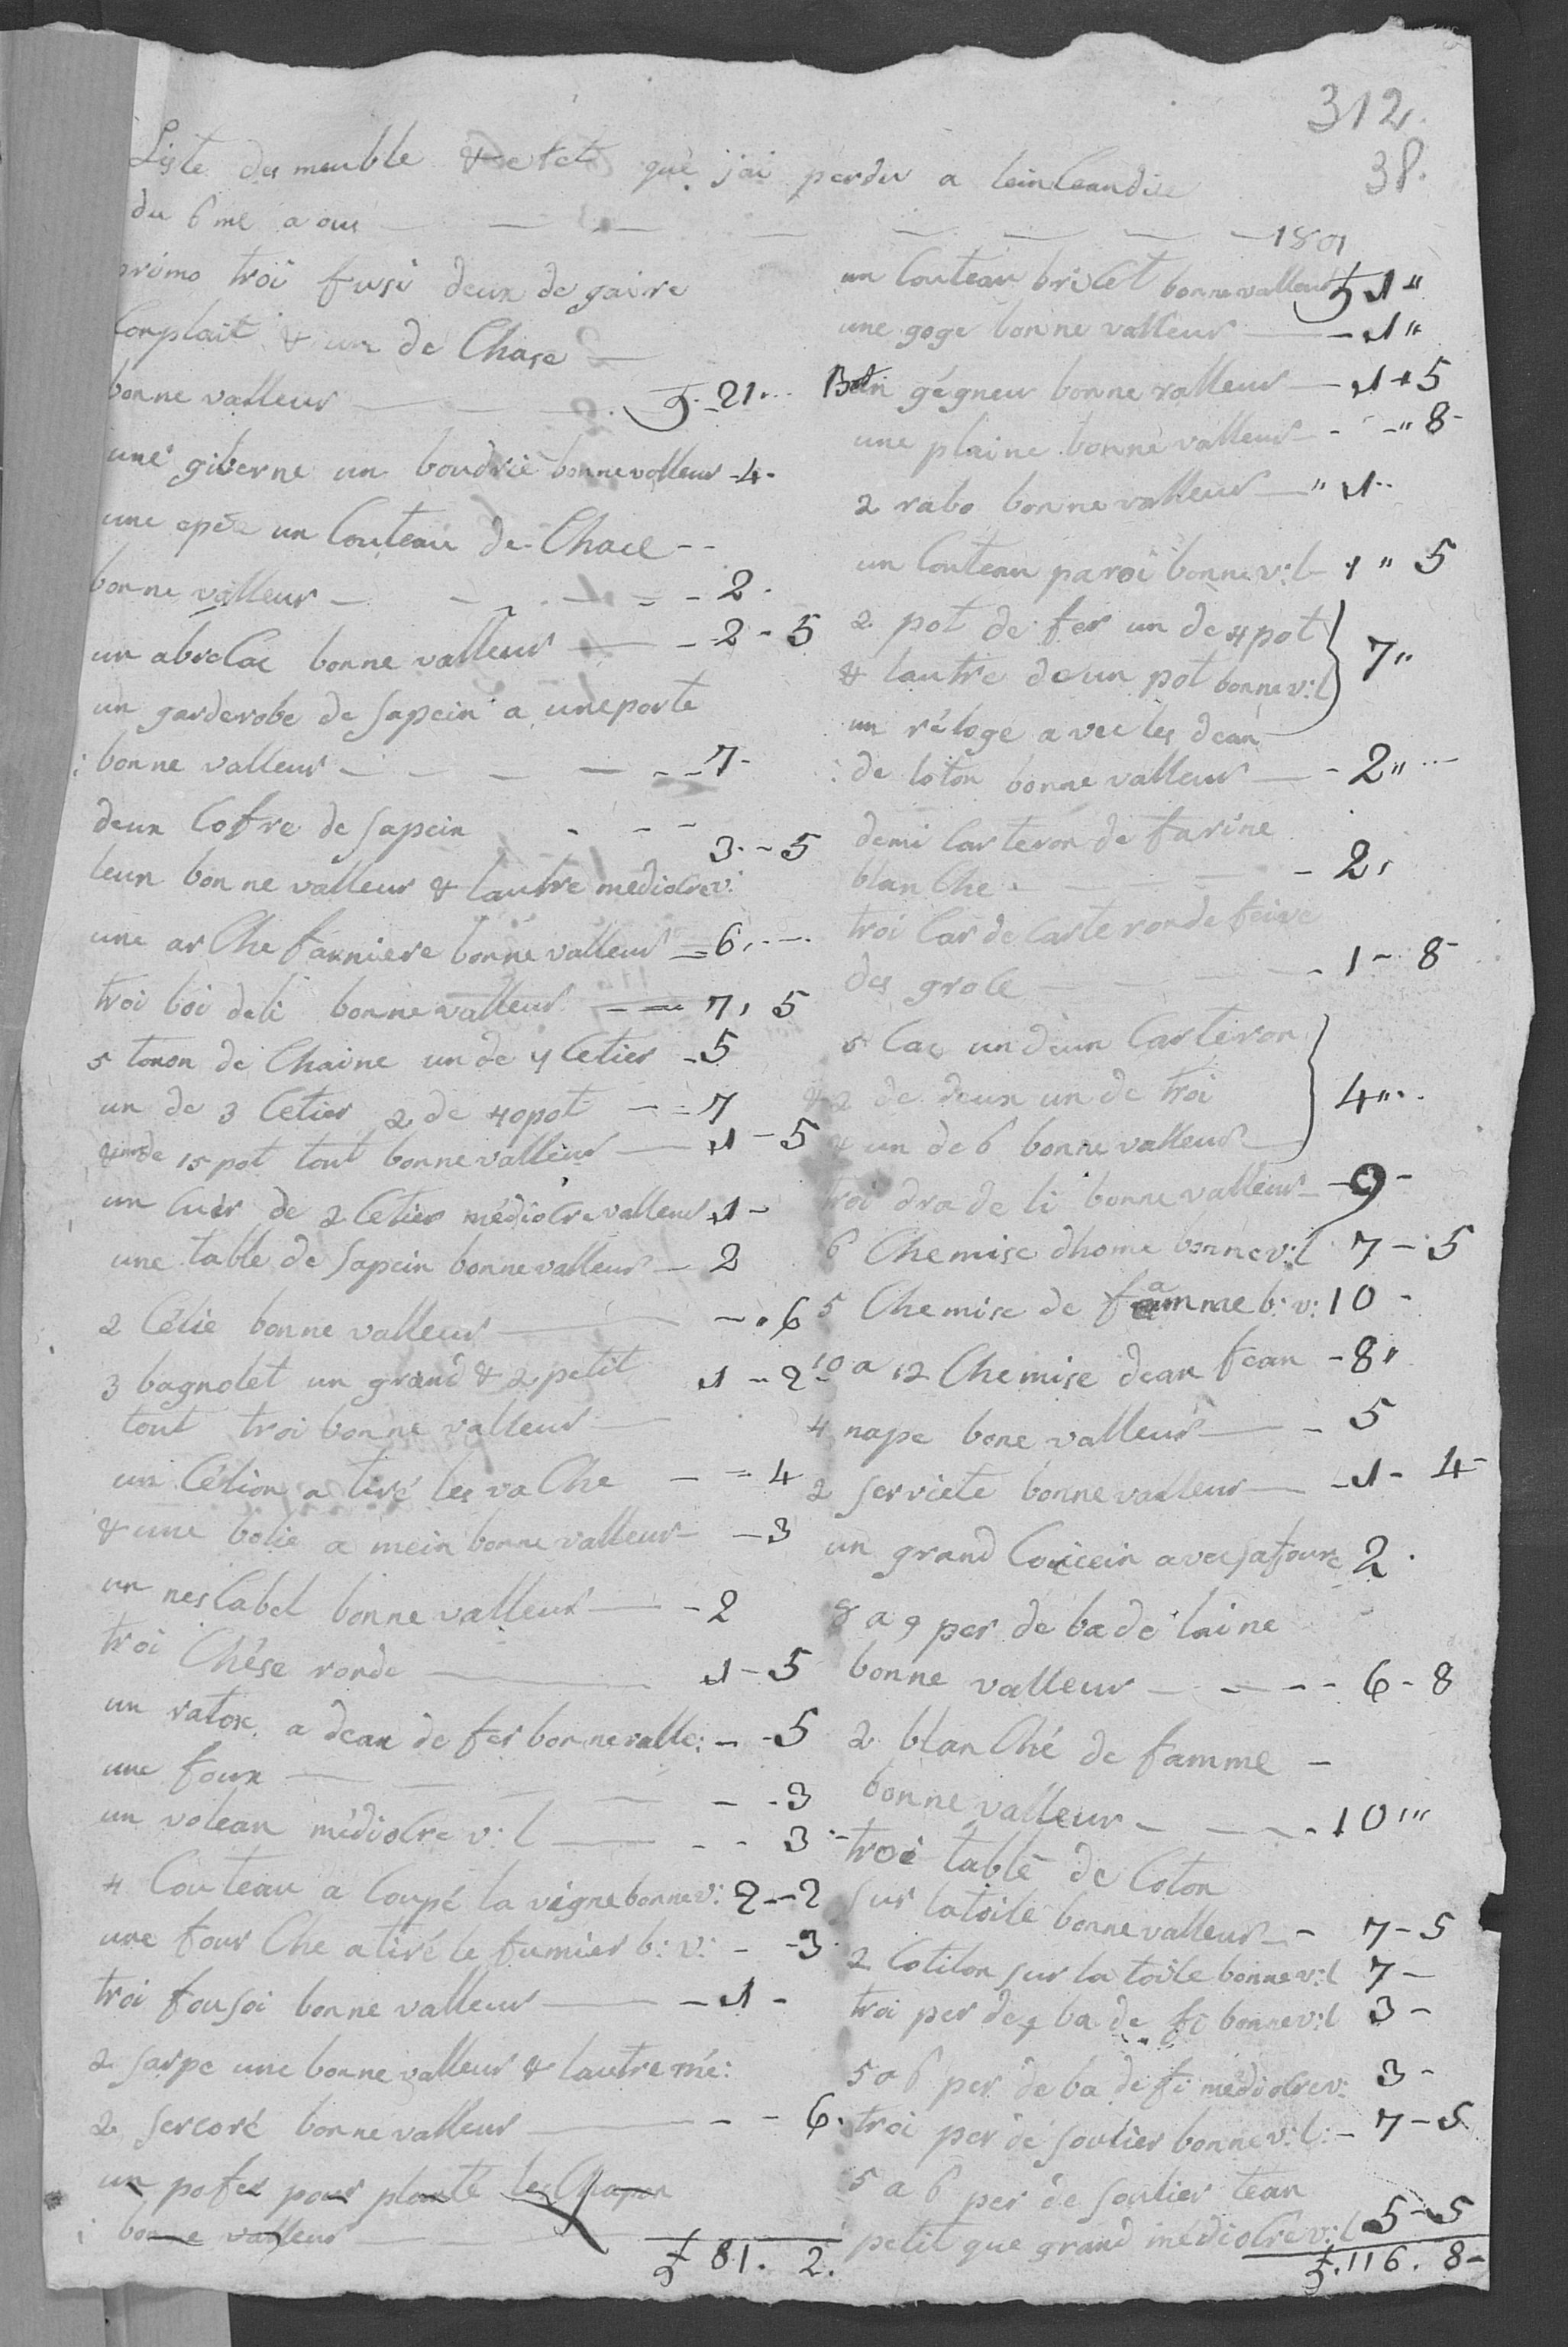 312.
38.
Liste des meuble & efet que j'ai perdu a leinCeandie
du 6 me a ous — — — — — — — 1801
primo troi fusi deux de gaire
Conplait & un de Chase —
bonne valleur — — — . 21...
une giberne un boudrié bonne valleur - 4 -
une epée un Couteau de Chace --
bonne valleur — - - - — = - 2 .
un abreCac bonne valleur — - 2 - 5
un garderobe de sapein a une porte
: bonne valleur — — — — - - 7 -
deux Cofre de sapein - - - 3 - - 5
leun bonne valleur & lautre mediocre v:
une arChe farniere bonne valleur = 6 . - -
troi boi deli bonne valleur — — 7 , 5
5 tonon de Chaine un de 4 Cetier - 5
un de 3 Cetier 2 de 40 pot — = 7
& un de 15 pot tout bonne valleur — 1 - 5
un Cuér de 2 Cetier médiocre valleur 1 -
une table de sapein bonne valleur — 2
2 Célie bonne valleur — - . 6
3 bagnolet un grand & 2 petit 1 - - 2
tout troi bonne valleur —
un Célion a tiré les vaChe — = 4
& une bolie a mein bonne valleur — - 3
un nesCabel bonne valleur — - 2
troi Chése ronde — 1 - 5
un ratoɛ a dean de fer bonne valle: — - 5
une foux — — — — - - 3
un volean médiocre v: l — - - 3
4 Couteau a Coupé la vigne bonne v: 2 - - 2
une fourChe a tiré le fumier b: v: - - 3
troi fousoi bonne valleur — - 1 -
2 sarpe une bonne valleur & lautre mé:
2 sercoré bonne valleur — - - 6.
un pofer pour planté les Chapon
: bonne valleur —
81 . 2 .
un Couteau briCet bonne valleur 1 "
une goge bonne valleur — - 1 "
gégneur bonne valleur — 1 + 5
une plaine bonne valleur - - " 8 -
2 rabo bonne valleur — " 1 ..
un Couteau paroi bonne v: l - 1 " 5
2 pot de fer un de 4 pot
& lautre de un pot bonne v: l 7 "
un réloge avec les dean
: de loton bonne valleur — - 2 " ...
demi Carteron de farine
blanChe . — — - 2 ,
troi Car de Carteron de feive
des grole — — — - 1 - 8 -
5 Cac un deun Carteron
& 2 de deux un de troi 4 " ..
& un de 6 bonne valleur —
troi dra de li bonne valleur — 9 -
6 Chemise dhome bonne v: l 7 - 5
5 Chemise de famme b: v: 10 -
10 a 12 Chemise dean fean - 8 "
4 nape bone valleur — - 5
2 serviete bonne valleur — - 1 - 4 -
un grand Coucein avec sa foure 2 .
8 a 9 per de ba de laine
bonne valleur — - - - - 6 - 8
2 blanChé de famme —
bonne valleur — — - - 10 "'
troi tablé de Coton
sur la toile bonne valleur — - 7 - 5
2 Cotilon sur la toile bonne v: l 7 -
troi per de ba de fi bonne v: l 3 -
5 a 6 per de ba de fi médiocre v: 3 -
troi per de soulier bonne v: l: - 7 - 5
5 a 6 per de soulier tean
petit que grand médiocre v: l 5 - 5
116 . 8 -